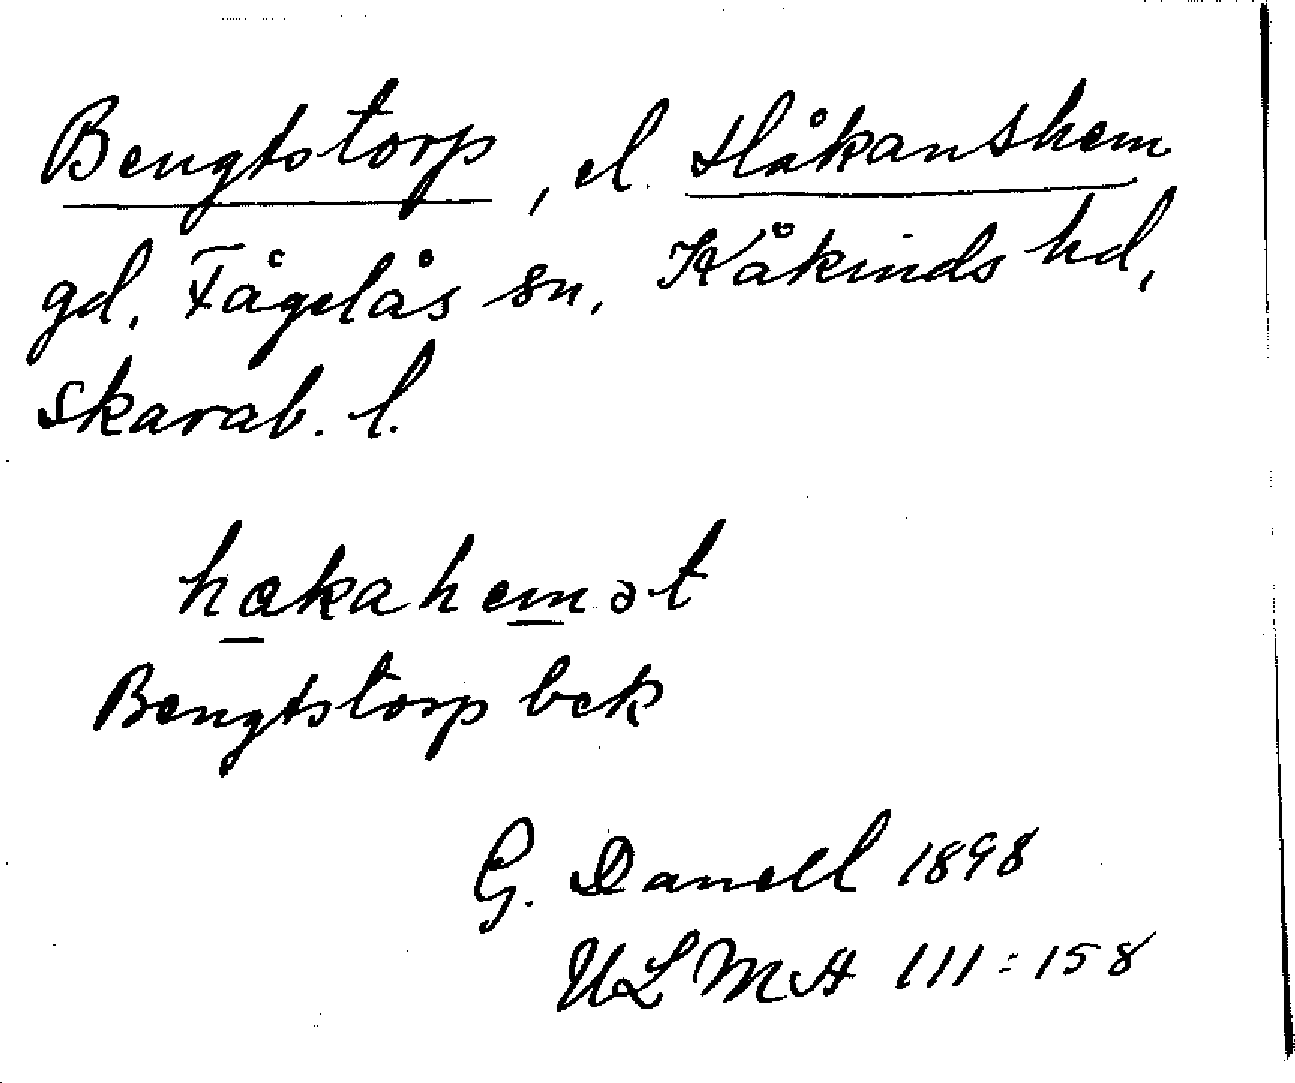 Bengtstorp, el. Håkanshem
gd, Fågelås sn, Kåkinds hd,
Skarab. l.
hakahemət
Bengtstorp bek
G. Danell 1898
ULMA 111:158